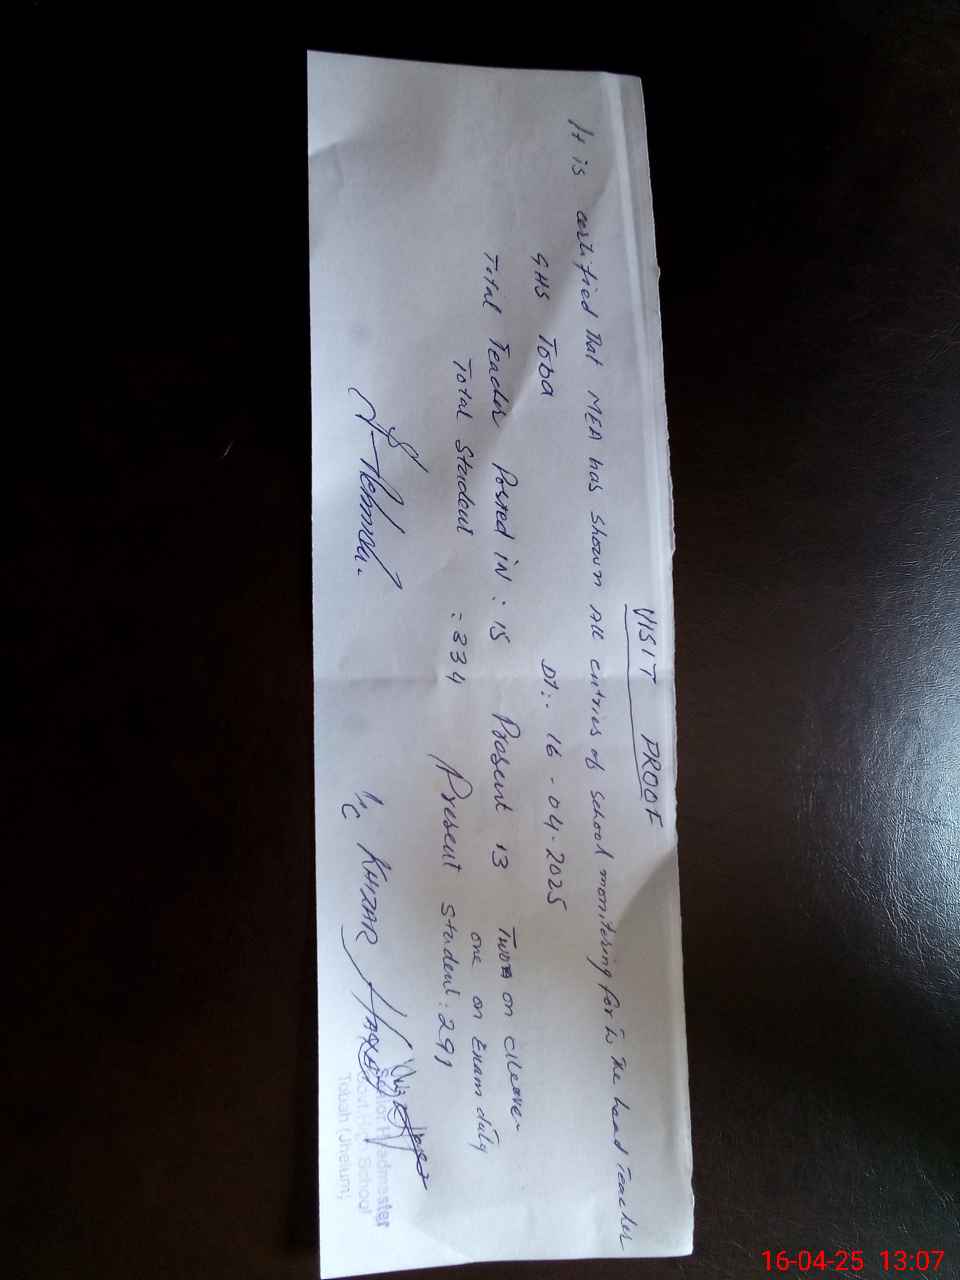 VISIT PROOF
It is certified that MEA has shown All entries of school monitering for to the head Teacher
GHS Toba Dt:- 16-04-2025
Total Teacher Posted IN : 15 Present 13 Two on
one on Exam duty
Total Student : 334 Present student: 291
I/c KHIZAR
Senior Headmaster
Govt. High School
Tobah (Jhelum)
16-04-25 13:07